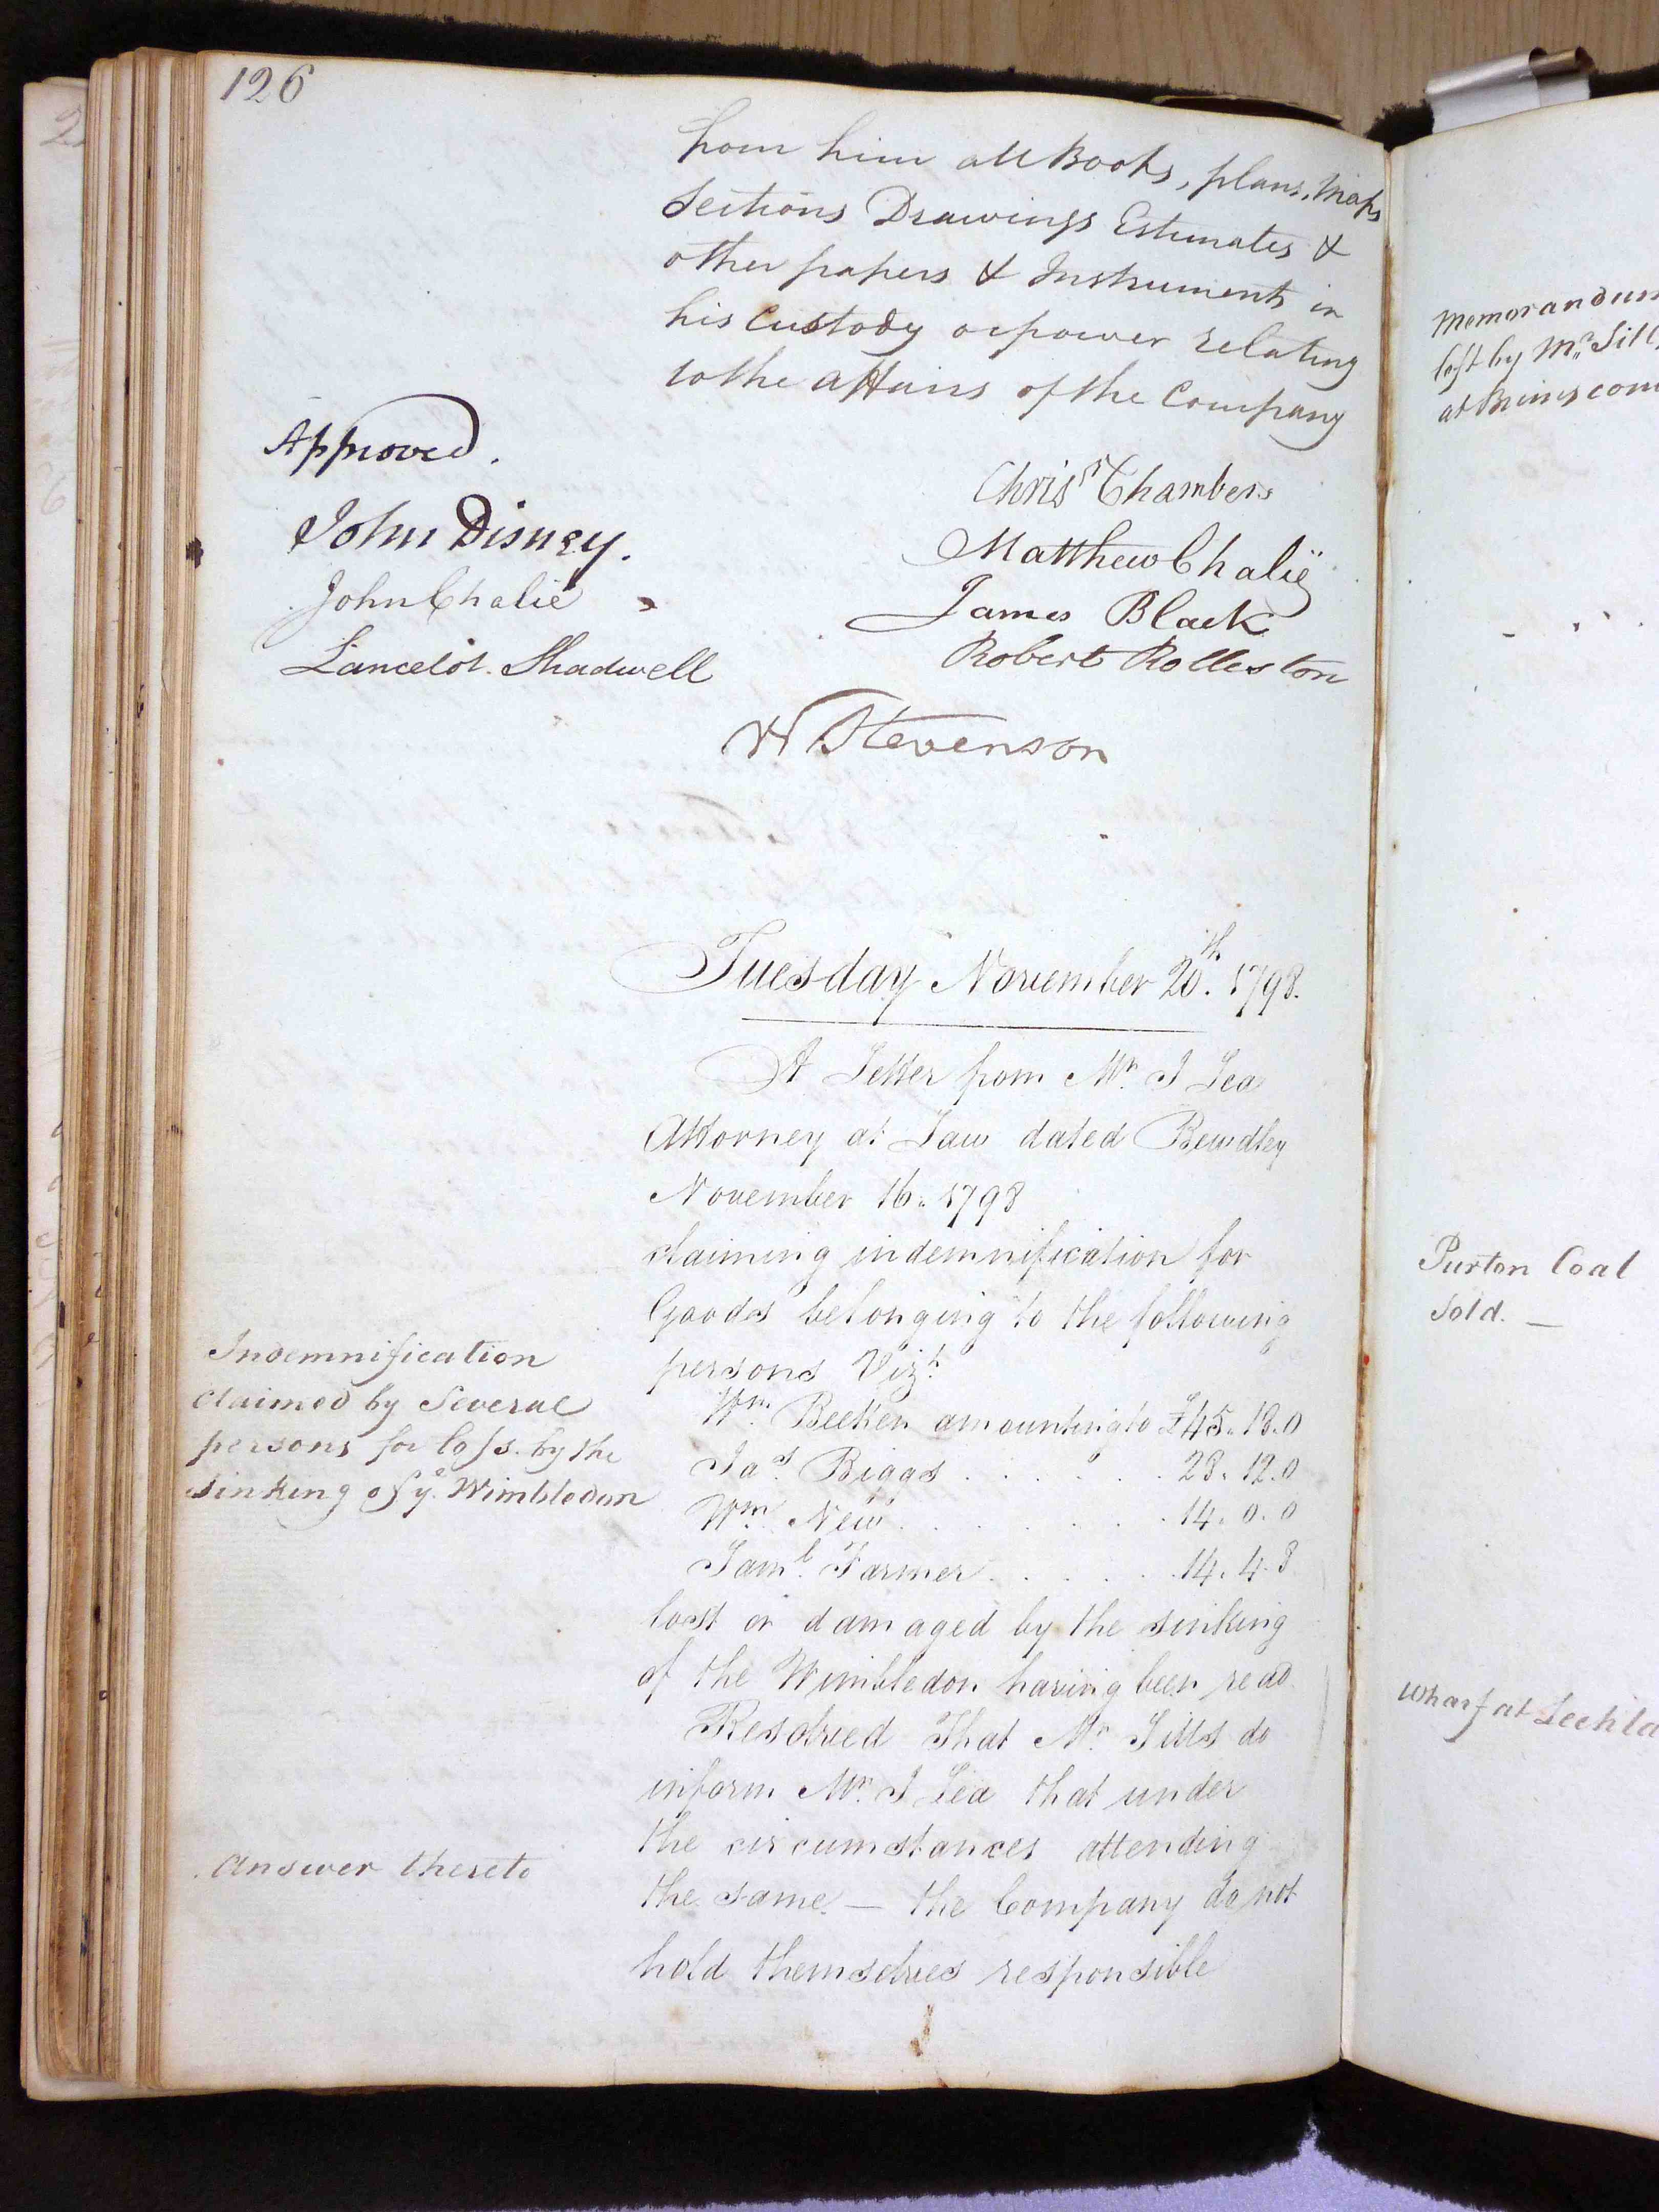 126
from him all Books, plans, Maps
Sections Drawings Estimates &
other papers & Instruments in
his Custody or power relating
to the Affairs of the Company
Approved.
John Disney.
John Chalié
Lancelot Shadwell
Chrisr Chambers
Matthew Chalië
James Black
Robert Rolleston
W Stevenson
Tuesday November 20th. 1798.
A Letter from Mr. I Lea
Attorney at Law dated Bewdley
November 16. 1798
claiming indemnification for
Goods belonging to the following
persons Vizt.
Wm. Beeken amounting to £45. 18. 0
Jas. Biggs . . . " . . 28. 12. 0
Wm. New . . . . . . 14. 0. 0
Saml. Farmer . . . . . 14. 4. 8
lost or damaged by the sinking
of the Wimbledon having been read
Resolved That Mr. Sills do
inform Mr. I Lea that under
the circumstances attending
the same — the Company do not
hold themselves responsible
Indemnification
claimed by Several
persons for loss by the
sinking of ye. Wimbledon
Answer thereto
Memorandum
left by Mr. Sill
at Brimscom
Purton Coal
Sold. —
Wharf at Lechla